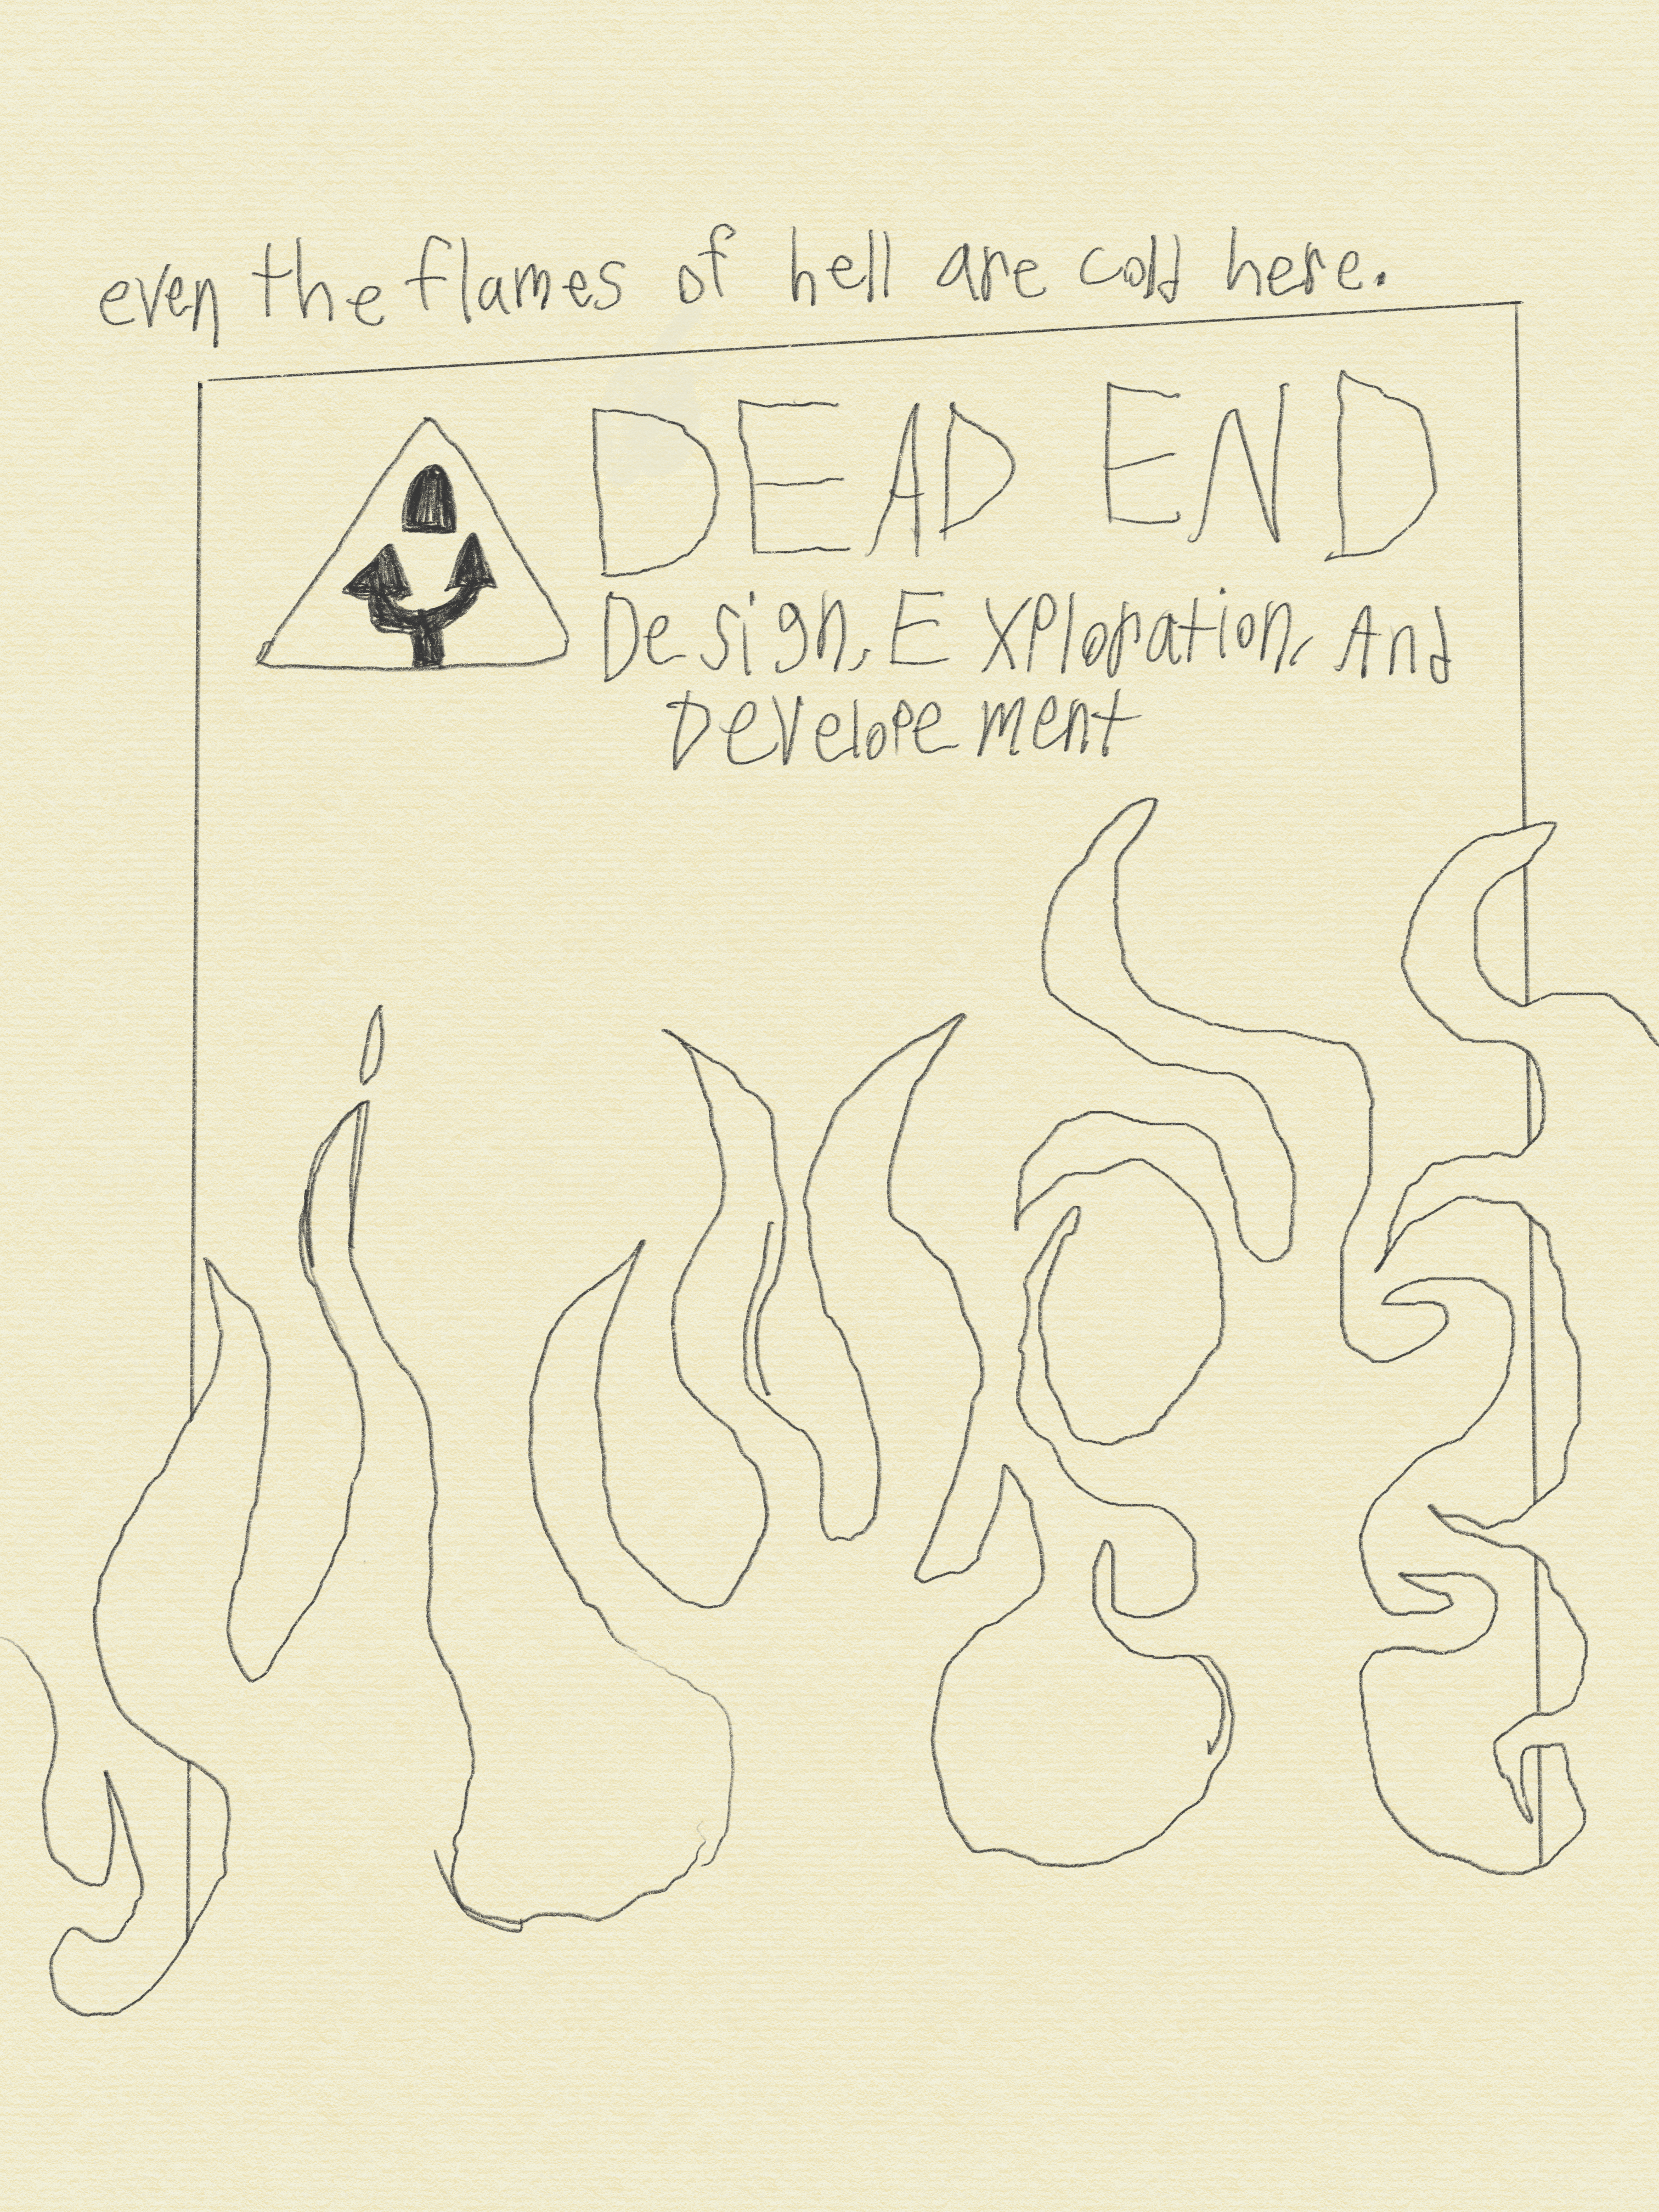 even the flames of hell are cold here.
DEAD END
Design, Exploration, And
Developement